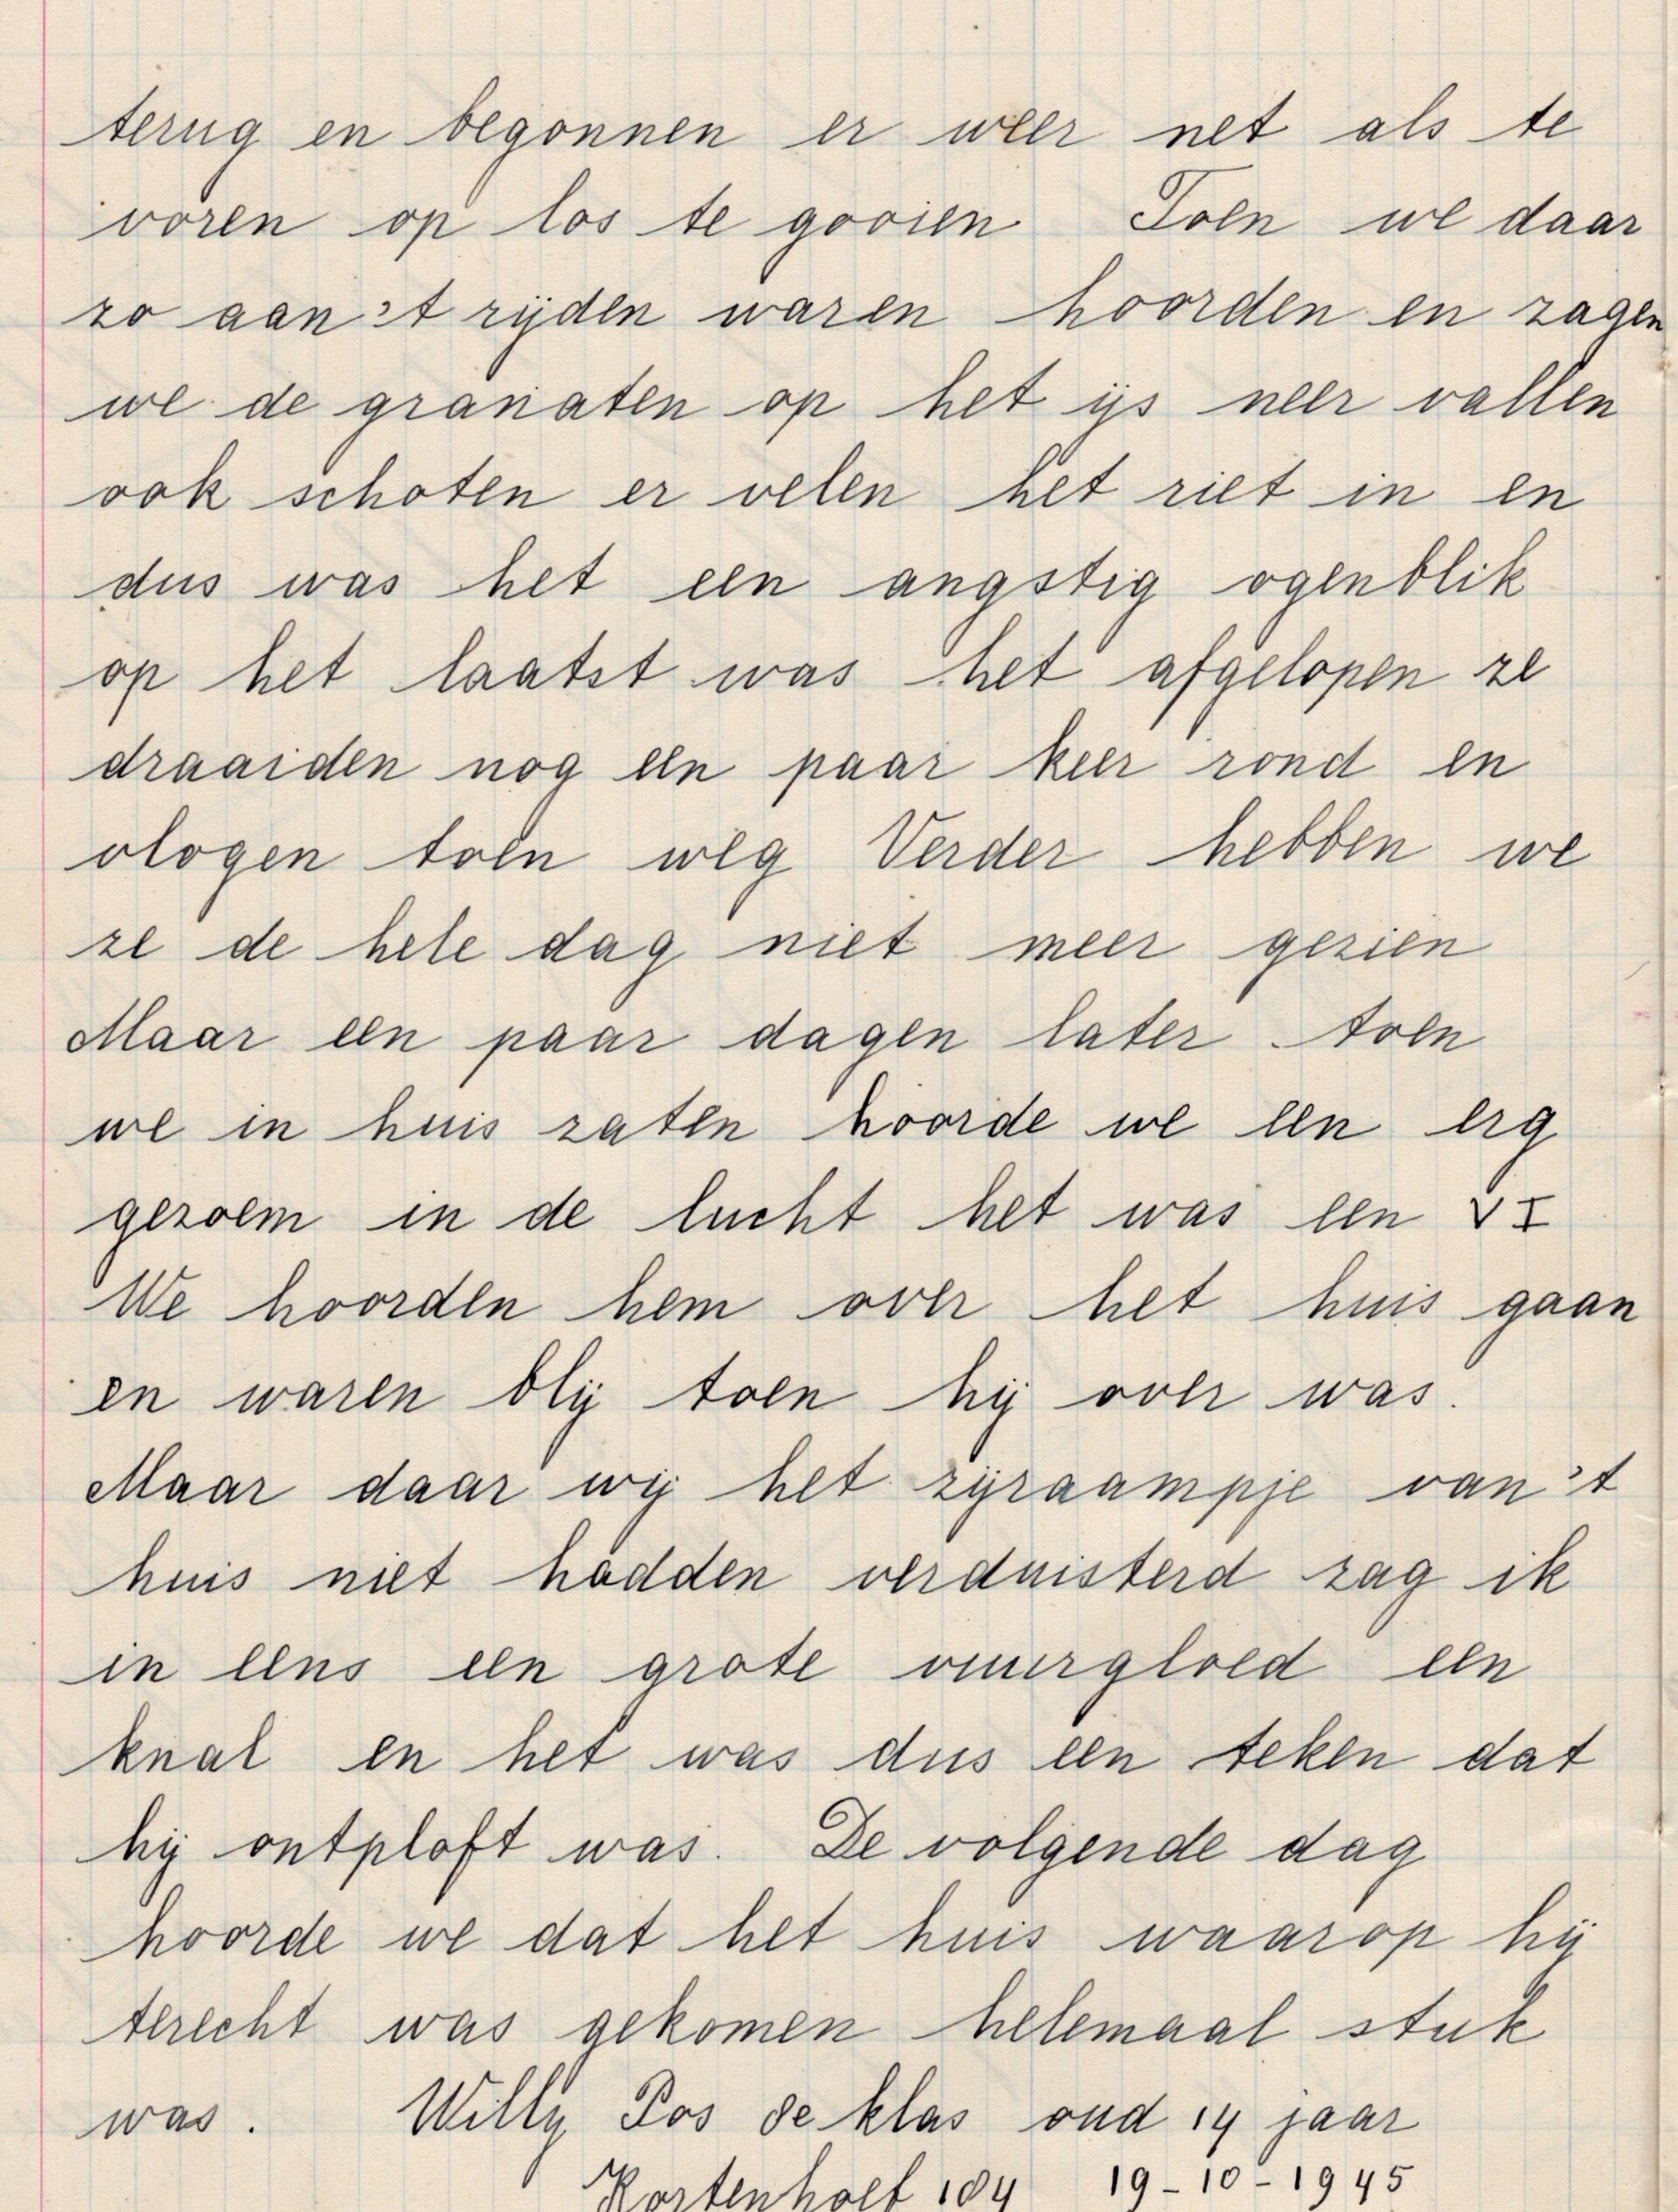 terug en begonnen er weer net als te
voren op los te gooien Toen we daar
zo aan 't rijden waren hoorden en zagen
we de granaten op het ijs neer vallen
ook schoten er velen het riet in en
dus was het een angstig ogenblik
op het laatst was het afgelopen ze
draaiden nog een paar keer rond en
vlogen toen weg Verder hebben we
ze de hele dag niet meer gezien
Maar een paar dagen later toen
we in huis zaten hoorde we een erg
gezoem in de lucht het was een V I
We hoorden hem over het huis gaan
en waren blij toen hij over was.
Maar daar wij het zijraampje van 't
huis niet hadden verduisterd zag ik
in eens een grote vuurgloed een
knal en het was dus een teken dat
hij ontploft was. De volgende dag
hoorde we dat het huis waarop hij
terecht was gekomen helemaal stuk
was. Willy Pos 8e klas oud 14 jaar
Kortenhoef 104 19-10-1945